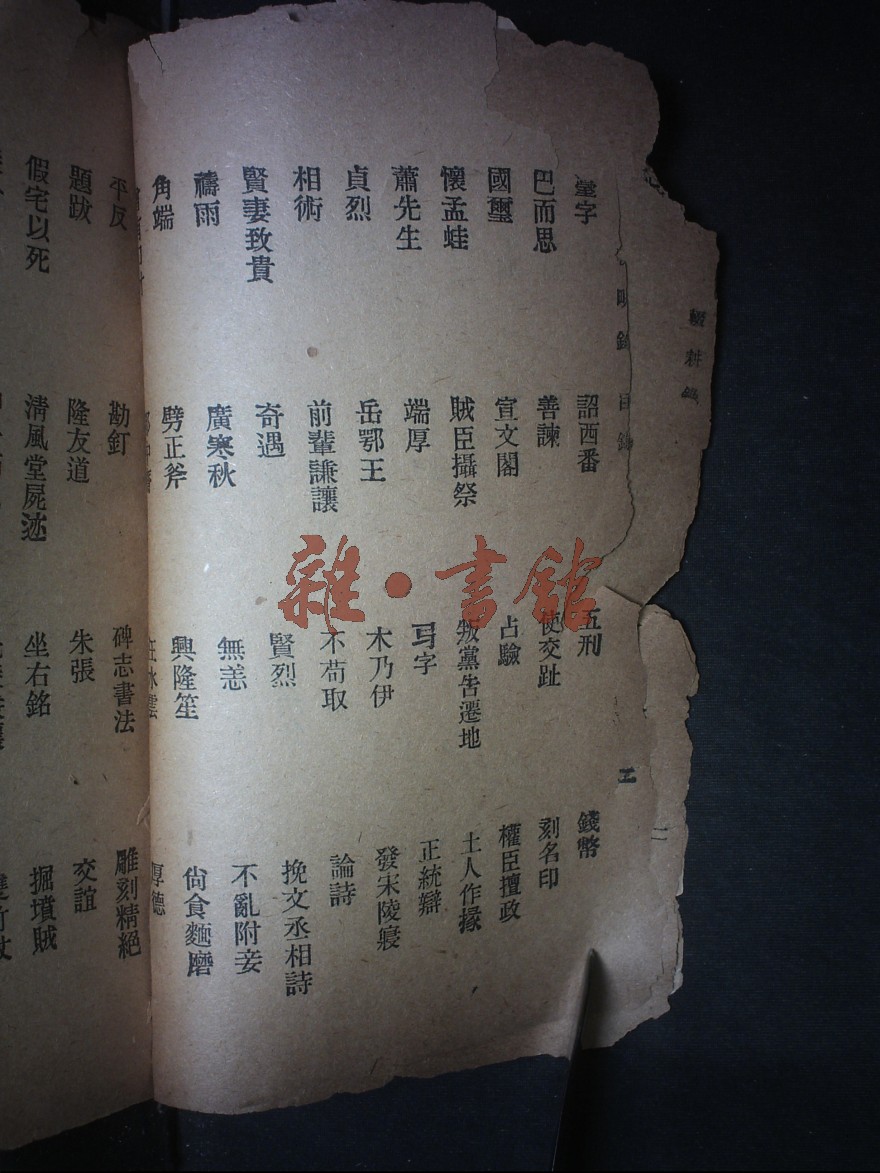 輟耕錄
二
耕錄 目錄
二
璽字 詔西番 五刑 錢幣
巴而思 善諫 使交趾 刻名印
國璽 宣文閣 占驗 權臣擅政
懷孟蛙 賊臣攝祭 叛黨告遷地 土人作掾
蕭先生 端厚 字 正統辯
貞烈 岳鄂王 木乃伊 發宋陵寢
相術 前輩謙讓 不苟取 論詩
賢妻致貴 奇遇 賢烈 挽文丞相詩
禱雨 廣寒秋 無恙 不亂附妾
角端 劈正斧 興隆笙 尙食麵磨
汪水雲 厚德
平反 勘釘 碑志書法 雕刻精絕
題跋 隆友道 朱張 交誼
假宅以死 淸風堂屍迹 坐右銘 掘墳賊
雜·書館